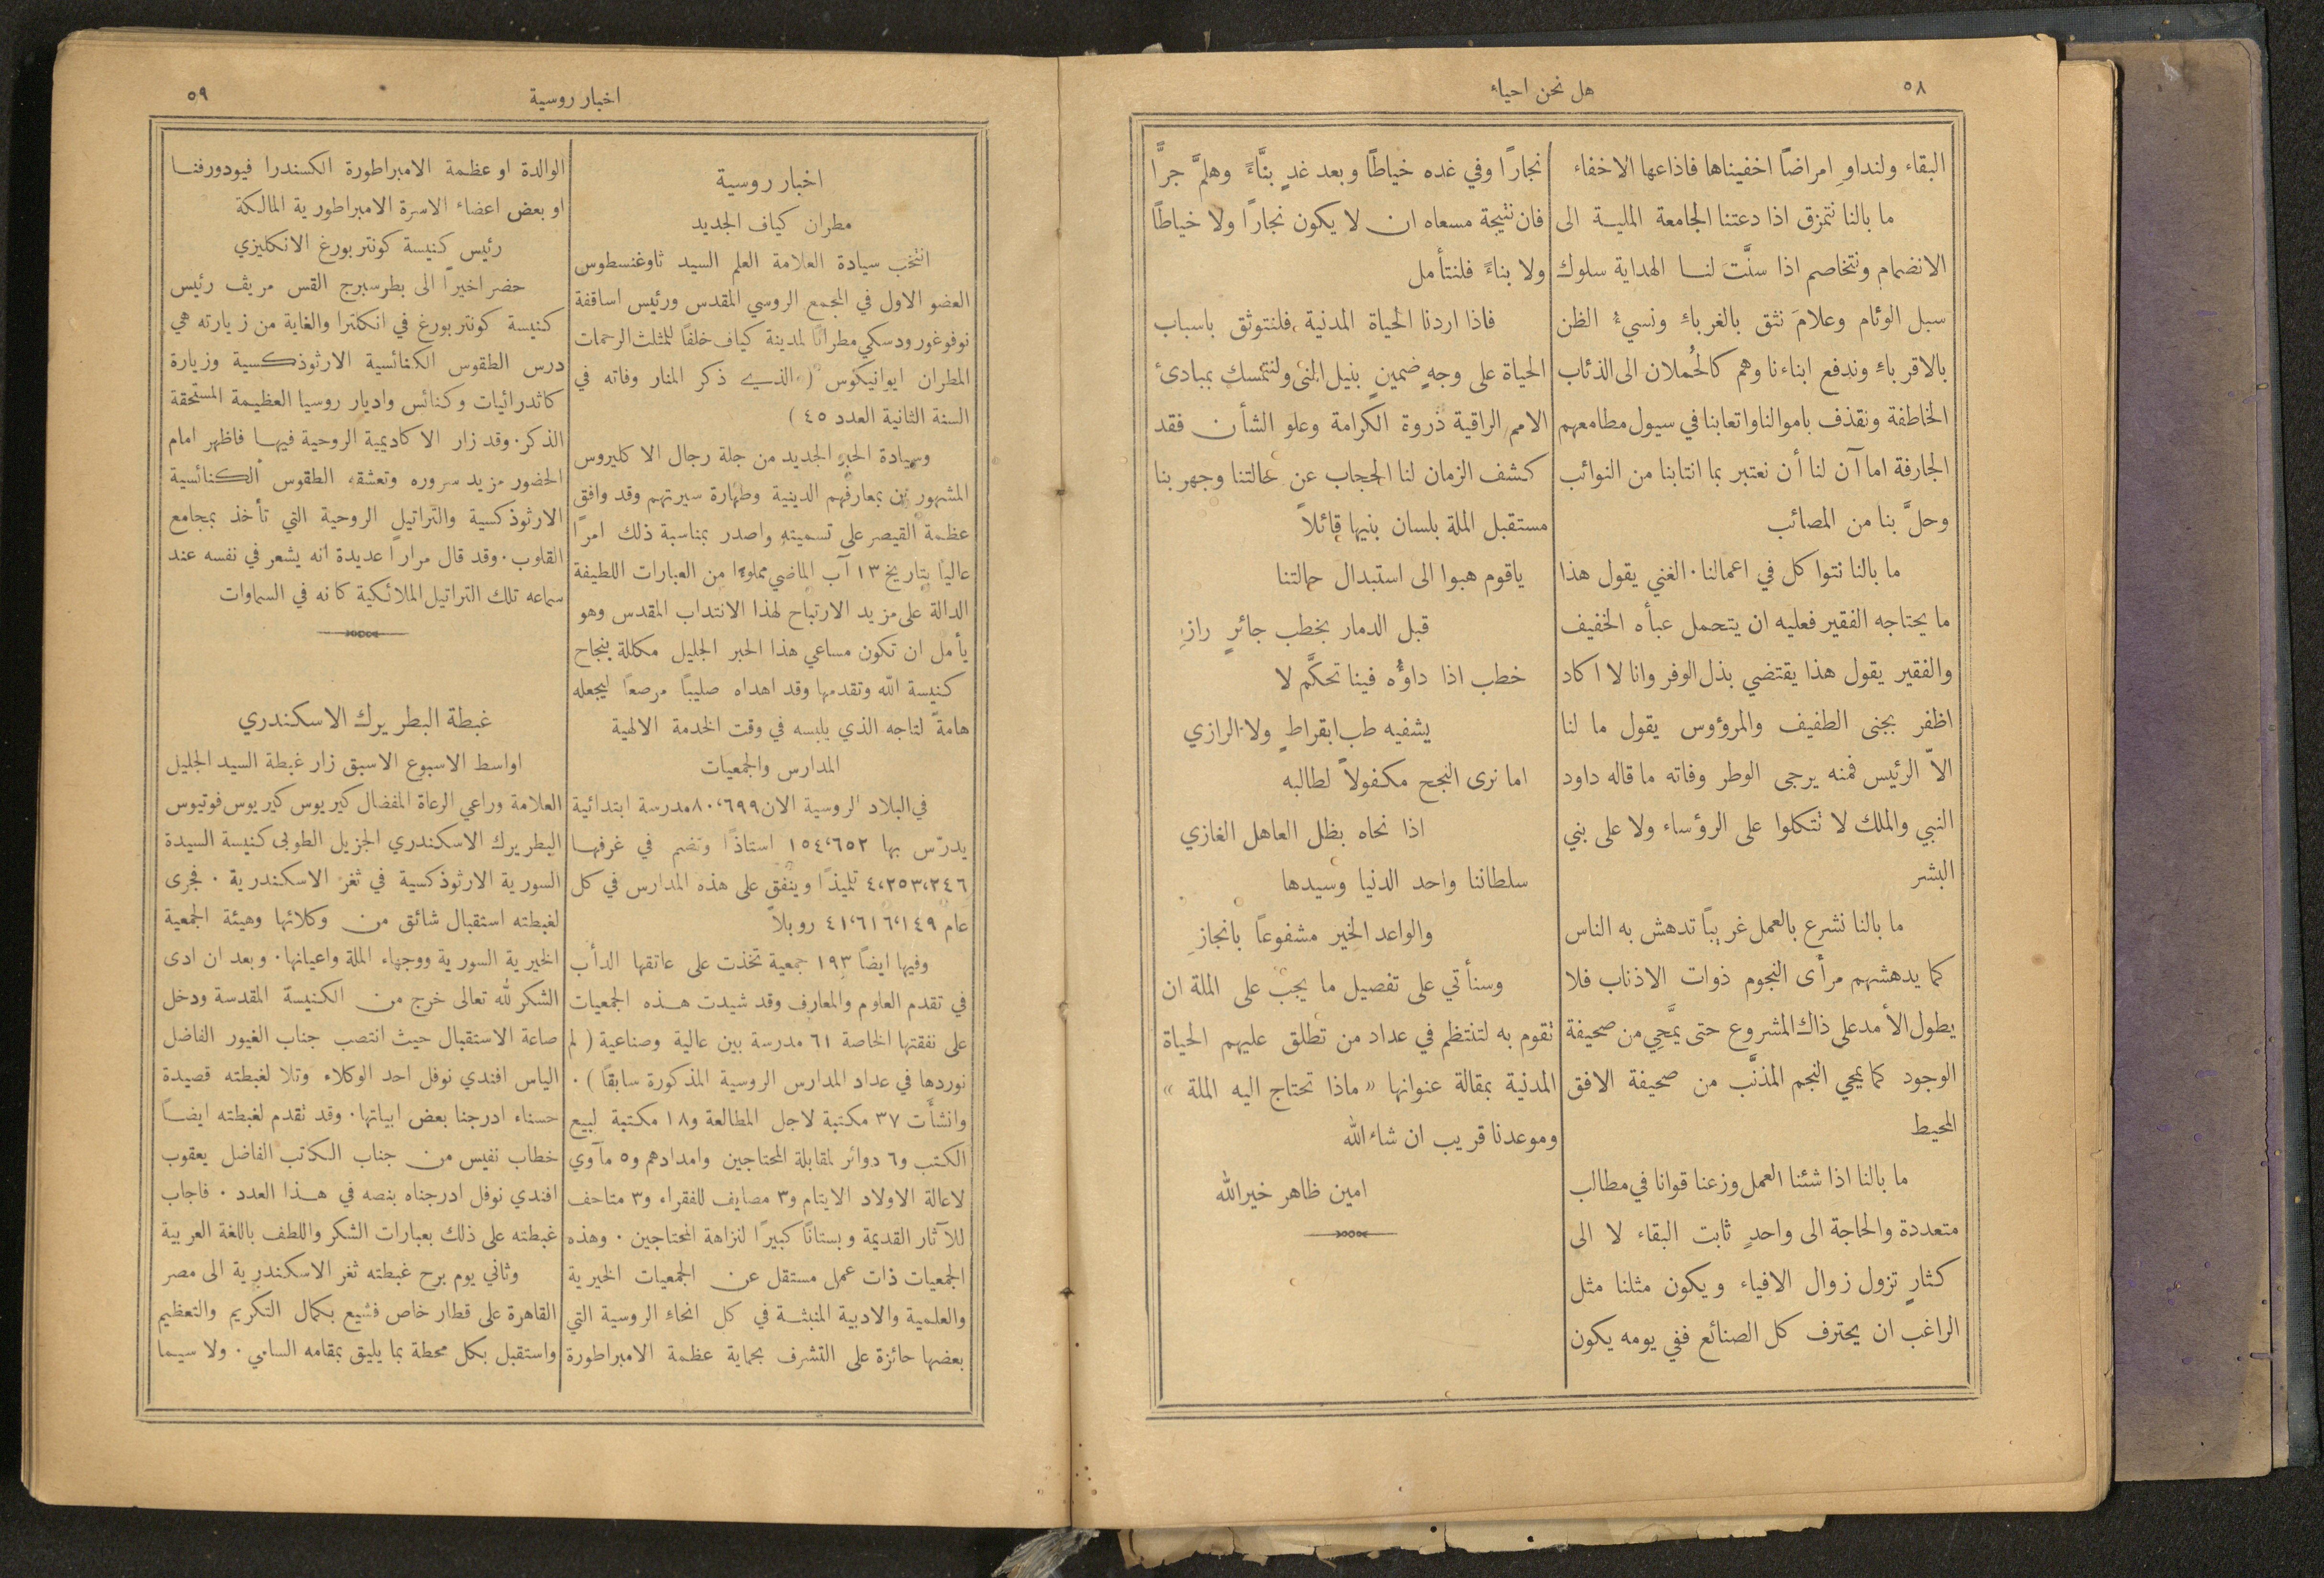 ٥٨
هل نحن احياء
البقاء ولنداوِ امراضًا اخفيناها فاذاعها الاخفاء
ما بالنا نتمزق اذا دعتنا الجامعة الملية الى
الانضمام ونتخاصم اذا سنَّت لنا الهداية سلوك
سبل الوئام وعلامَ نثق بالغرباءِ ونسيءُ الظن
بالاقرباءِ وندفع ابناءنا وهم كالحُملان الى الذئاب
الخاطفة ونقذف باموالنا واتعابنا في سيول مطامعهم
الجارفة اما آن لنا أن نعتبر بما انتابنا من النوائب
وحلَّ بنا من المصائب
ما بالنا نتواكل في اعمالنا . الغني يقول هذا
ما يحتاجه الفقير فعليه ان يتحمل عبأه الخفيف
والفقير يقول هذا يقتضي بذل الوفر وانا لا اكاد
اظفر بجنى الطفيف والمرؤوس يقول ما لنا
الاّ الرئيس فمنه يرجى الوطر وفاته ما قاله داود
النبي والملك لا تتكلوا على الرؤساء ولا على بني
البشر
ما بالنا نشرع بالعمل غريبًا تدهش به الناس
كما يدهشهم مرأى النجوم ذوات الاذناب فلا
يطول الأمد على ذاك المشروع حتى يمَّحِي من صحيفة
الوجود كما يمحي النجم المذنَّب من صحيفة الافق
المحيط
ما بالنا اذا شئنا العمل وزعنا قوانا في مطالب
متعددة والحاجة الى واحدٍ ثابت البقاء لا الى
كثارٍ تزول زوال الافياء ويكون مثلنا مثل
الراغب ان يحترف كل الصنائع ففي يومه يكون
نجارًا وفي غده خياطًا وبعد غدٍ بنَّاءً وهلمَّ جرًّا
فان نتيجة مسعاه ان لا يكون نجارًا ولا خياطًا
ولا بناءً فلنتأمل
فاذا اردنا الحياة المدنية فلنتوثق باسباب
الحياة على وجهٍ ضمينٍ بنيل المنى ولنتمسك بمبادئ
الامم الراقية ذروة الكرامة وعلو الشأن فقد
كشف الزمان لنا الحجاب عن حالتنا وجهر بنا
مستقبل الملة بلسان بنيها قائلاً
ياقوم هبوا الى استبدال حالتنا
قبل الدمار بخطب جائرٍ رازِ
خطب اذا داؤُه فينا تحكَّم لا
يشفيه طب ابقراطٍ ولا الرازي
اما نرى النجح مكفولاً لطالبه
اذا نحاه بظل العاهل الغازي
سلطاننا واحد الدنيا وسيدها
والواعد الخير مشفوعًا بانجازِ
وسنأتي على تفصيل ما يجب على الملة ان
تقوم به لتنتظم في عداد من تطلق عليهم الحياة
المدنية بمقالة عنوانها « ماذا تحتاج اليه الملة »
وموعدنا قريب ان شاء الله
امين ظاهر خيرالله
اخبار روسية
٥٩
اخبار روسية
مطران كياف الجديد
انتخب سيادة العلامة العلم السيد ثاوغنسطوس
العضو الاول في المجمع الروسي المقدس ورئيس اساقفة
نوفوغورودسكي مطرانًا لمدينة كياف خلفًا للمثلث الرحمات
المطران ايوانيكوس ( الذي ذكر المنار وفاته في
السنة الثانية العدد ٤٥ )
وسيادة الحبر الجديد من جلة رجال الاكليروس
المشهورين بمعارفهم الدينية وطهارة سيرتهم وقد وافق
عظمة القيصر على تسميته واصدر بمناسبة ذلك امرًا
عاليًا بتاريخ ١٣ آب الماضي مملوءًا من العبارات اللطيفة
الدالة على مزيد الارتياح لهذا الانتداب المقدس وهو
يأمل ان تكون مساعي هذا الحبر الجليل مكللة بنجاح
كنيسة الله وتقدمها وقد اهداه صليبًا مرصعًا ليجعله
هامةً لتاجه الذي يلبسه في وقت الخدمة الالهية
المدارس والجمعيات
في البلاد الروسية الان ٨٠،٦٩٩ مدرسة ابتدائية
يدرّس بها ١٥٤،٦٥٢ استاذًا وتضم في غرفها
٤،٢٥٣،٢٤٦ تلميذًا وينفق على هذه المدارس في كل
عام ٤١،٦١٦،١٤٩ روبلاً
وفيها ايضًا ١٩٣ جمعية تخذت على عاتقها الدأب
في تقدم العلوم والمعارف وقد شيدت هذه الجمعيات
على نفقتها الخاصة ٦١ مدرسة بين عالية وصناعية ( لم
نوردها في عداد المدارس الروسية المذكورة سابقًا ) .
وانشأَت ٣٧ مكتبة لاجل المطالعة و١٨ مكتبة لبيع
الكتب و٦ دوائر لمقابلة المحتاجين وامدادهم و٥ مآوي
لاعالة الاولاد الايتام و٣ مصايف للفقراء و٣ متاحف
للآثار القديمة وبستانًا كبيرًا لنزاهة المحتاجين . وهذه
الجمعيات ذات عمل مستقل عن الجمعيات الخيرية
والعلمية والادبية المنبثة في كل انحاء الروسية التي
بعضها حائزة على التشرف بحماية عظمة الامبراطورة
الوالدة او عظمة الامبراطورة الكسندرا فيودورفنا
او بعض اعضاء الاسرة الامبراطورية المالكة
رئيس كنيسة كونتربورغ الانكليزي
حضر اخيرًا الى بطرسبرج القس مريڤ رئيس
كنيسة كونتربورغ في انكلترا والغاية من زيارته هي
درس الطقوس الكنائسية الارثوذكسية وزيارة
كاثدرائيات وكنائس واديار روسيا العظيمة المستحقة
الذكر . وقد زار الاكاديمية الروحية فيها فاظهر امام
الحضور مزيد سروره وتعشقه الطقوس الكنائسية
الارثوذكسية والتراتيل الروحية التي تأخذ بمجامع
القلوب . وقد قال مرارًا عديدة انه يشعر في نفسه عند
سماعه تلك التراتيل الملائكية كانه في السماوات
غبطة البطريرك الاسكندري
اواسط الاسبوع الاسبق زار غبطة السيد الجليل
العلامة وراعي الرعاة المفضال كيريوس كيريوس فوتيوس
البطريرك الاسكندري الجزيل الطوبى كنيسة السيدة
السورية الارثوذكسية في ثغر الاسكندرية . فجرى
لغبطته استقبال شائق من وكلائها وهيئة الجمعية
الخيرية السورية ووجهاء الملة واعيانها . وبعد ان ادى
الشكر لله تعالى خرج من الكنيسة المقدسة ودخل
صاعة الاستقبال حيث انتصب جناب الغيور الفاضل
الياس افندي نوفل احد الوكلاء وتلا لغبطته قصيدة
حسناء ادرجنا بعض ابياتها . وقد تقدم لغبطته ايضًا
خطاب نفيس من جناب الكاتب الفاضل يعقوب
افندي نوفل ادرجناه بنصه في هذا العدد . فاجاب
غبطته على ذلك بعبارات الشكر واللطف باللغة العربية
وثاني يوم برح غبطته ثغر الاسكندرية الى مصر
القاهرة على قطار خاص فشيع بكمال التكريم والتعظيم
واستقبل بكل محطة بما يليق بمقامه السامي . ولا سيما